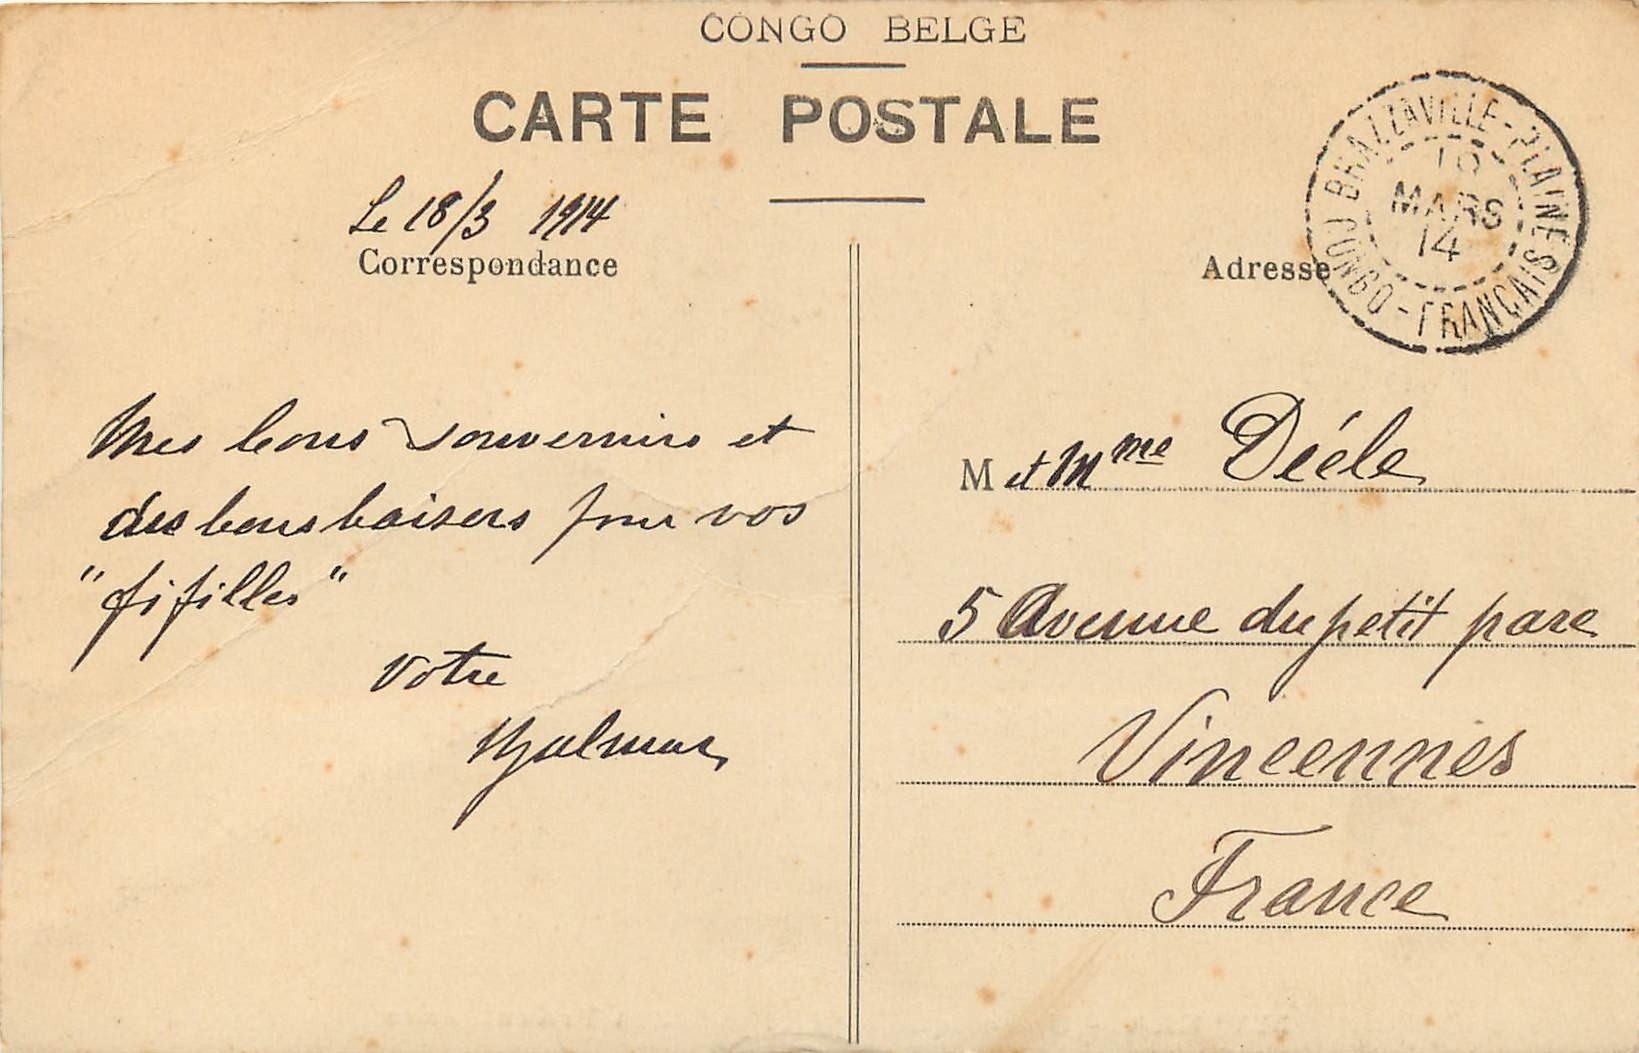 CONGO BELGE
CARTE POSTALE
Le 18/3 1914
Correspondance
Mes bons souvenirs et
des bons baisers pour vos
"fifilles"
Votre
Hjalmar
BRAZZAVILLE-PLAINES
MARS
14
CONGO-FRANÇAIS
Adresse
M et Mme Diéle
5 Avenue du petit parc
Vincennes
France